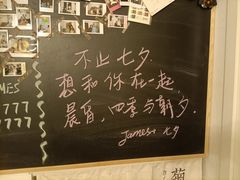 不止七夕.
想和你在一起,
晨昏,四季与朝夕.
James+ 七夕
MES
777
7777
菊